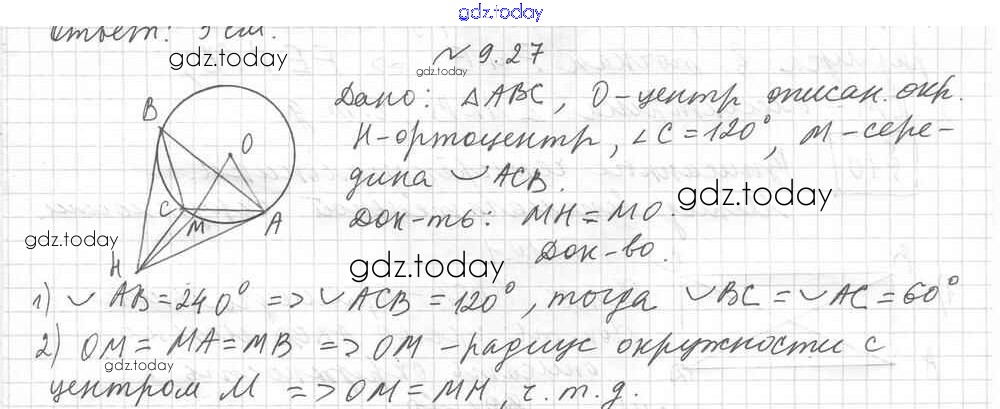 gdz.today
Ответ: 5 см.
gdz.today
№ 9.27
gdz.today
Дано: △ABC, O-центр описан. окр.
H-ортоцентр, ∠C = 120°, M-сере-
дина ◡ ACB.
gdz.today
Док-ть: MH = MO.
Док-во.
B
O
C
M
A
H
gdz.today
gdz.today
1) ◡ AB = 240° => ◡ ACB = 120°, тогда ◡BC = ◡AC = 60°
2) OM = MA = MB => OM - радиус окружности с
gdz.today
центром M => OM = MH, ч.т.д.